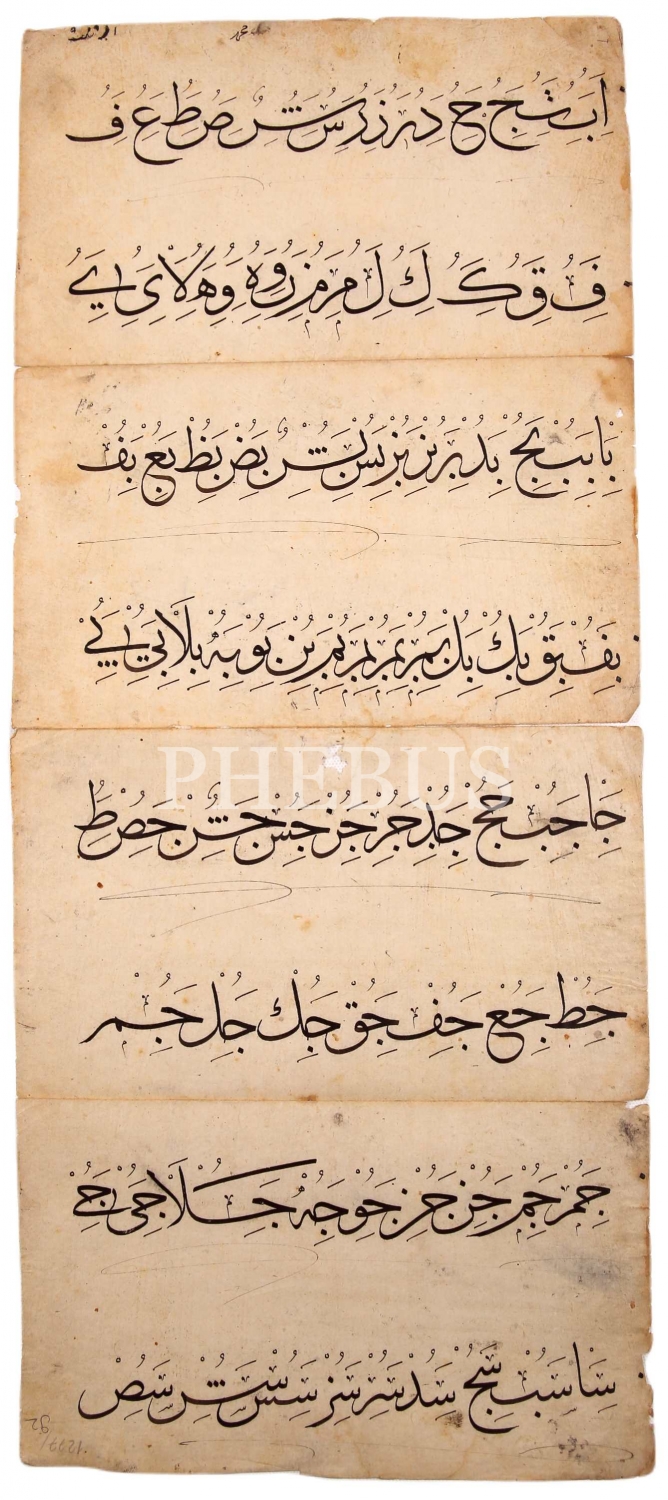 ا ب ث ج ح د ر ز ر س ش ص ط ع ف
ف ق ك ك ل م م ن و ه و ه لا ى ے
با بب بج بد بر بز بس بش بض بظ بع بف
بف بق بك بل بم بم بم بم بن بو به بلا بى بے
PHEBUS
جا جب جج جد جر جز جس جش جص جط
جط جع جف جق جك جل جم
جم جم جن جن جو جه جلا جى جے
سا سب سج سد سر سز سس سش سص